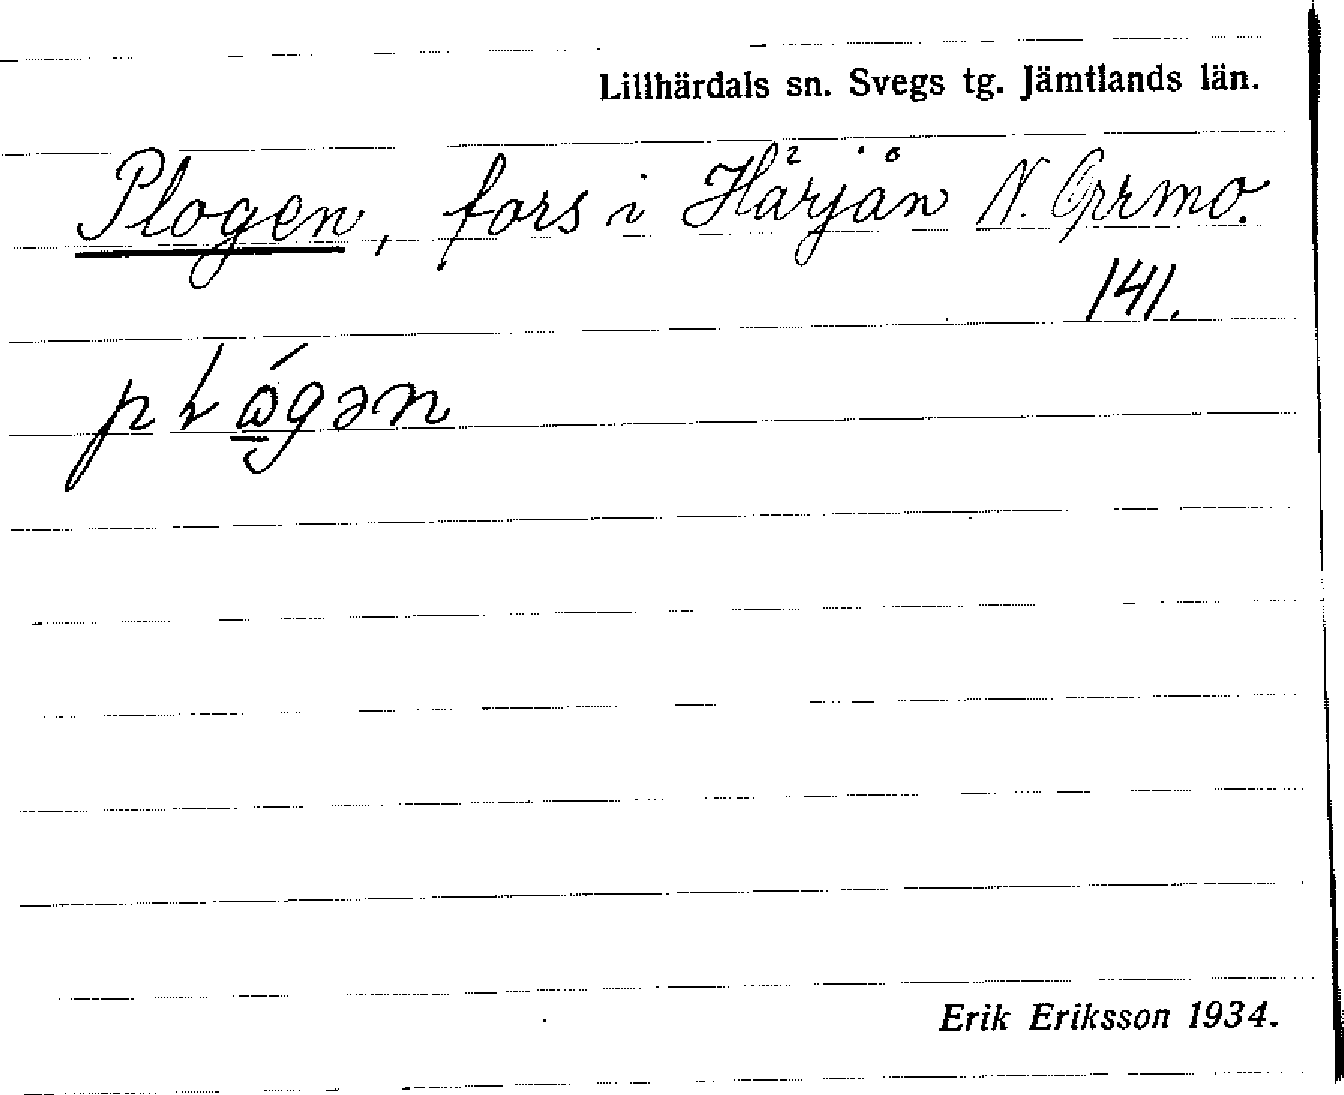 Lillhärdals sn. Svegs tg. Jämtlands län.
Plogen, fors i Härjån N. Orrmo.
141.
Erik Eriksson 1934.